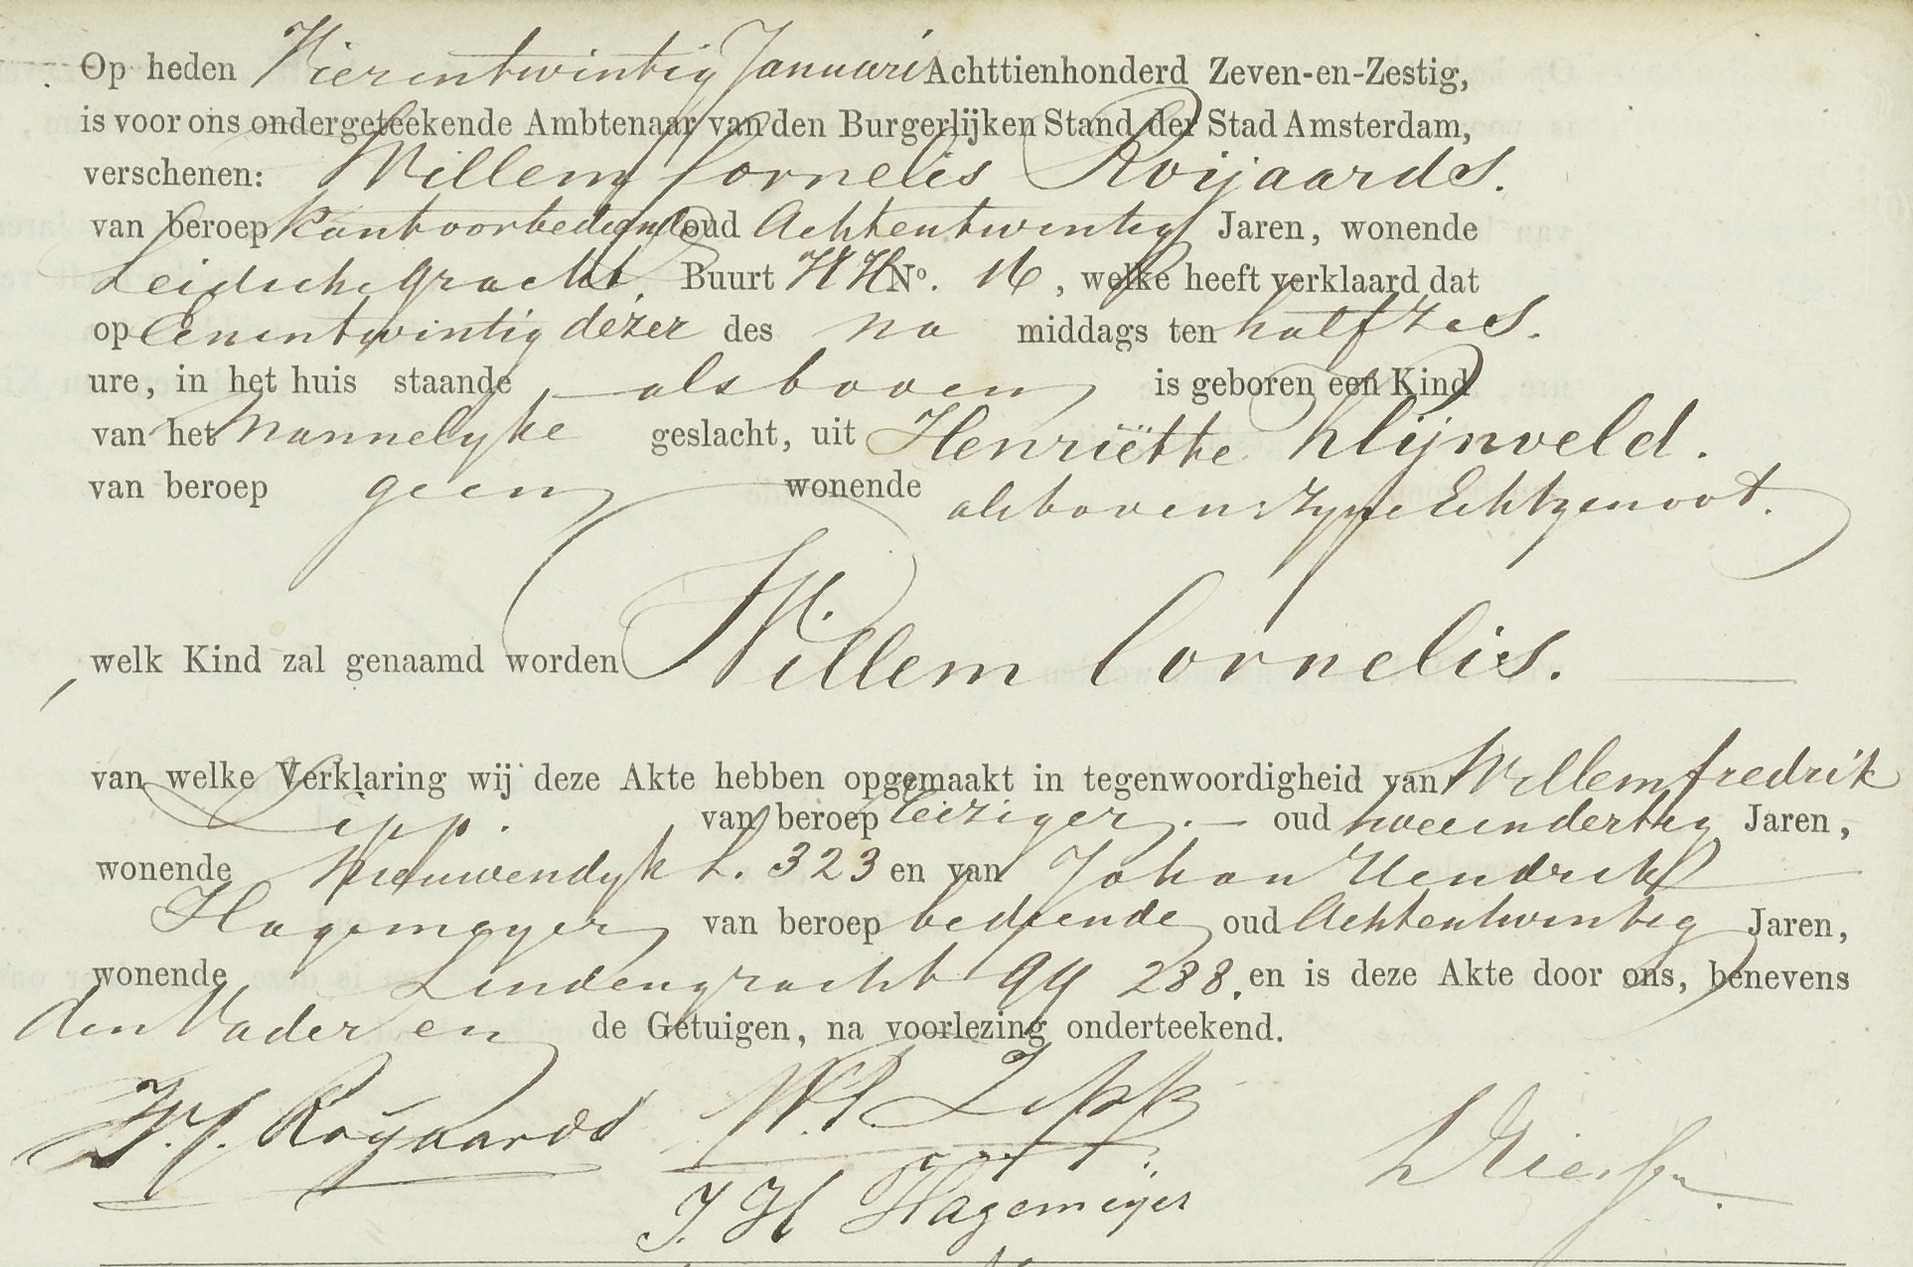 Op heden Vierentwintig Januari Achttienhonderd Zeven-en-Zestig,
is voor ons ondergeteekende Ambtenaar van den Burgerlijken Stand der Stad Amsterdam,
verschenen: Willem Cornelis Roijaards.
van beroep kantoorbediende oud Achtentwintig Jaren, wonende
Leidschegracht Buurt HH No. 16, welke heeft verklaard dat
op Eenentwintig dezer des na middags ten half zes.
ure, in het huis staande alsboven is geboren een Kind
van het Mannelyke geslacht, uit Henriëtte Klijnveld.
van beroep geen wonende alsboven zyne Echtgenoot.
welk Kind zal genaamd worden Willem Cornelis.
van welke Verklaring wij deze Akte hebben opgemaakt in tegenwoordigheid van Willem fredrik
Lipp. van beroep reiziger. oud tweeendertig Jaren,
wonende Nieuwendyk L. 323 en van Johan Hendrik
Hagemeyer van beroep bediende oud Achtentwintig Jaren,
wonende Lindengracht QQ 288. en is deze Akte door ons, benevens
den Vader en de Getuigen, na voorlezing onderteekend.
W. C. Royaards W. F. Lipp
J. H Hagemeijer